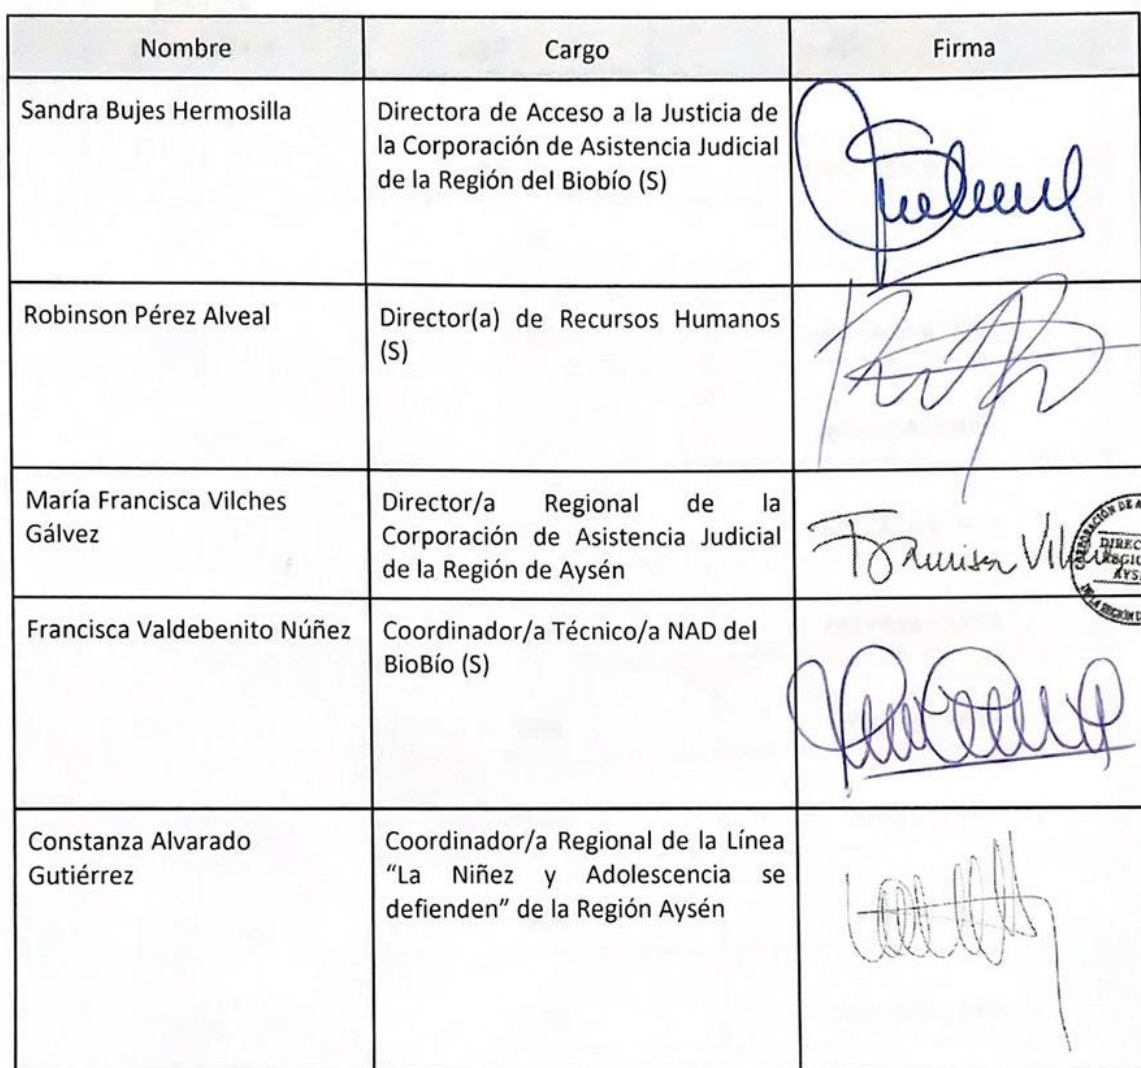 Nombre Cargo Firma
Sandra Bujes Hermosilla
Directora de Acceso a la Justicia de
la Corporación de Asistencia Judicial
de la Región del Biobío (S)
Robinson Pérez Alveal
Director(a) de Recursos Humanos
(S)
María Francisca Vilches
Gálvez
Director/a Regional de la
Corporación de Asistencia Judicial
de la Región de Aysén
Francisca Valdebenito Núñez
Coordinador/a Técnico/a NAD del
BioBío (S)
Constanza Alvarado
Gutiérrez
Coordinador/a Regional de la Línea
“La Niñez y Adolescencia se
defienden” de la Región Aysén